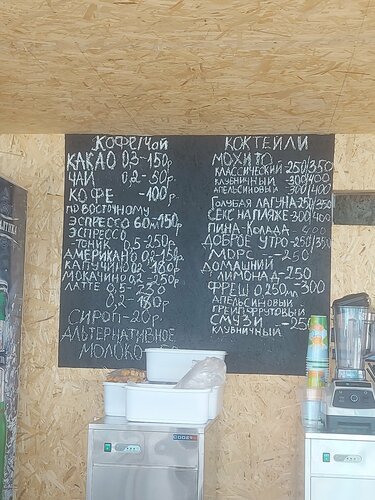 КОФЕ/Чай
КАКАО 0,3-150р
ЧАЙ 0,2-50р.
КОФЕ -100р.
по восточному
ЭСПРЕССО 60мл150р
ЭСПРЕССО
-ТОНИК 0,5-250р.
АМЕРИКАНО 0,2-150р
КАПУЧИНО 0,2-180р
МОКАЧИНО 0,2-250р
ЛАТТЕ 0,5-230
0,2-180р
СИРОП-20р.
АЛЬТЕРНАТИВНОЕ
МОЛОКО
КОКТЕЙЛИ
МОХИТО
КЛАССИЧЕСКИЙ-250/350
КЛУБНИЧНЫЙ -300/400
АПЕЛЬСИНОВЫЙ -300/400
ГОЛУБАЯ ЛАГУНА250/350
СЕКС НА ПЛЯЖЕ-300/400
ПИНА-КОЛАДА -400
ДОБРОЕ УТРО-250/350
МОРС -250
ДОМАШНИЙ
ЛИМОНАД-250
ФРЕШ 0,250мл-300
АПЕЛЬСИНОВЫЙ
ГРЕЙПФРУТОВЫЙ
СМУЗИ -250
КЛУБНИЧНЫЙ